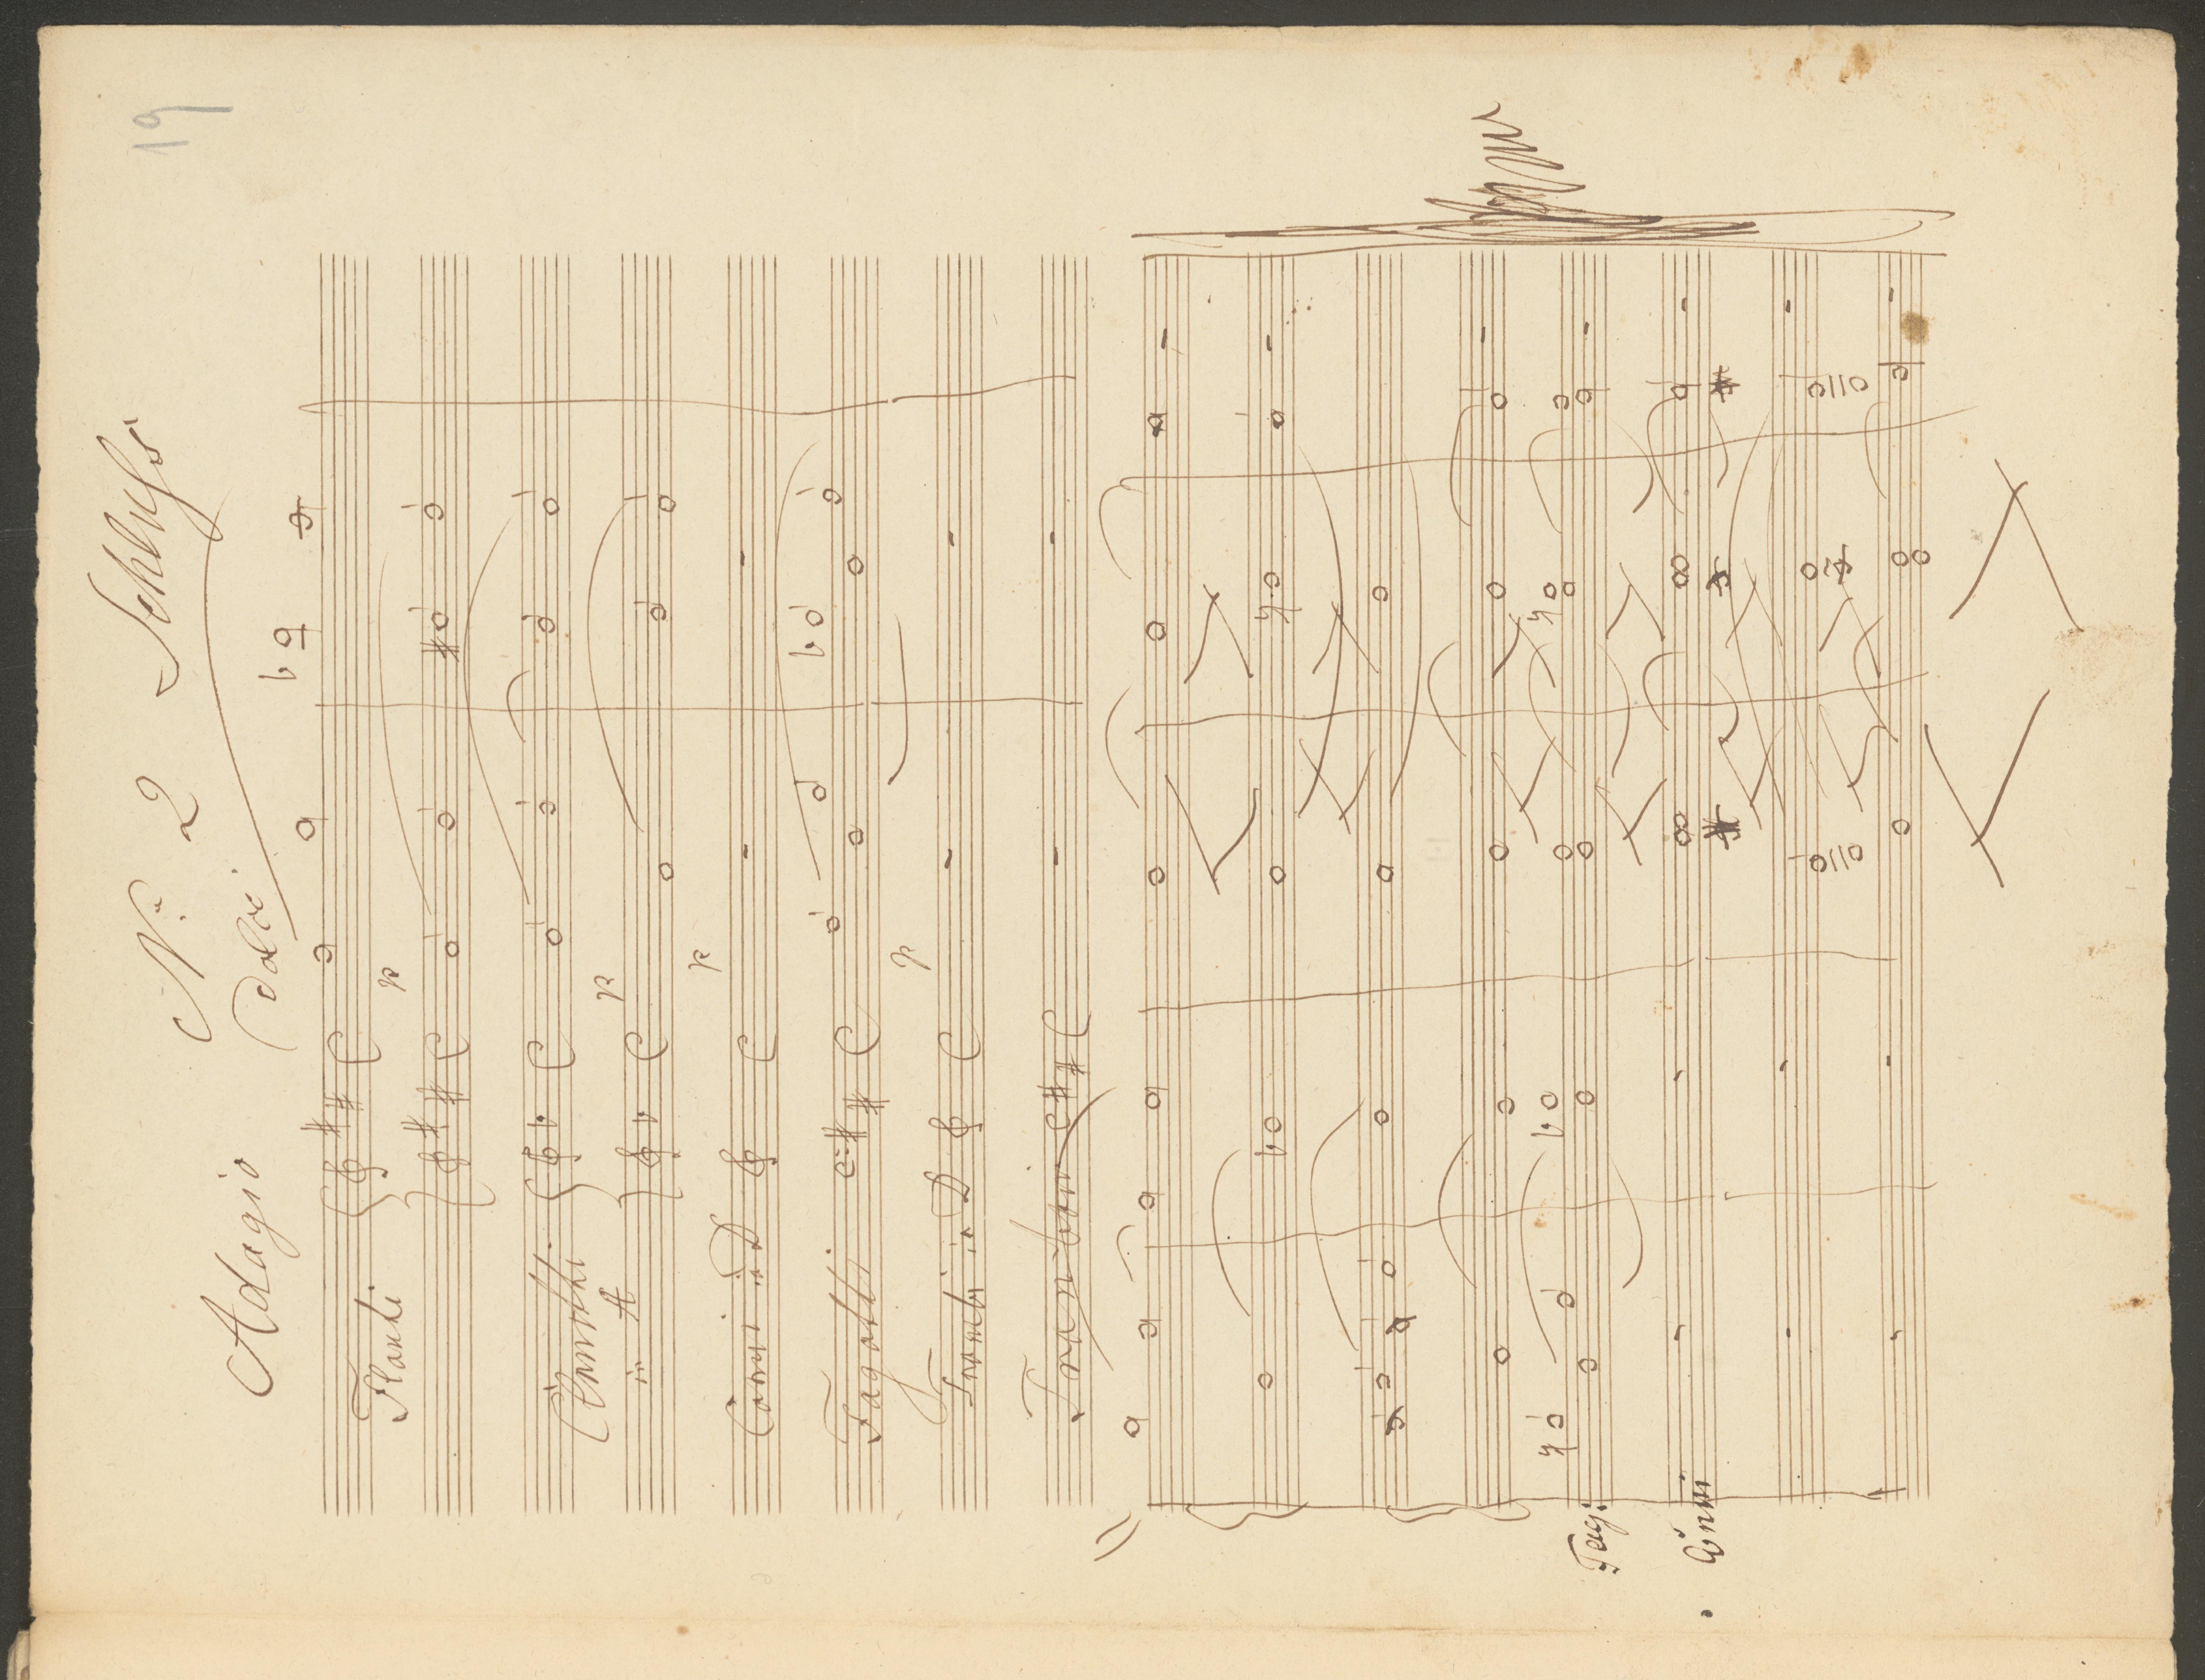 19
Nº 2 Schluss
Adagio
dolce
Flauti
p
Clarinetti
in A
p
Corni in D
p
Fagotti
p
Trombi in D
Fag:
Corni